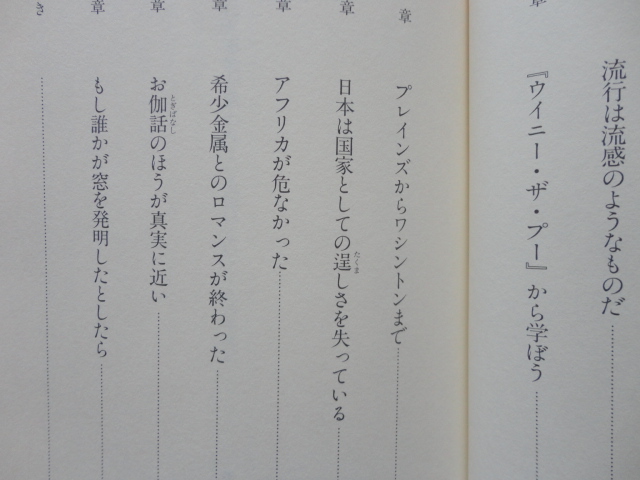 流行は流感のようなものだ
章
『ウイニー・ザ・プー』から学ぼう
章
プレインズからワシントンまで
章
日本は国家としての逞しさを失っている
たくま
章
アフリカが危なかった
章
希少金属とのロマンスが終わった
章
お伽話のほうが真実に近い
とぎばなし
章
もし誰かが窓を発明したとしたら
き